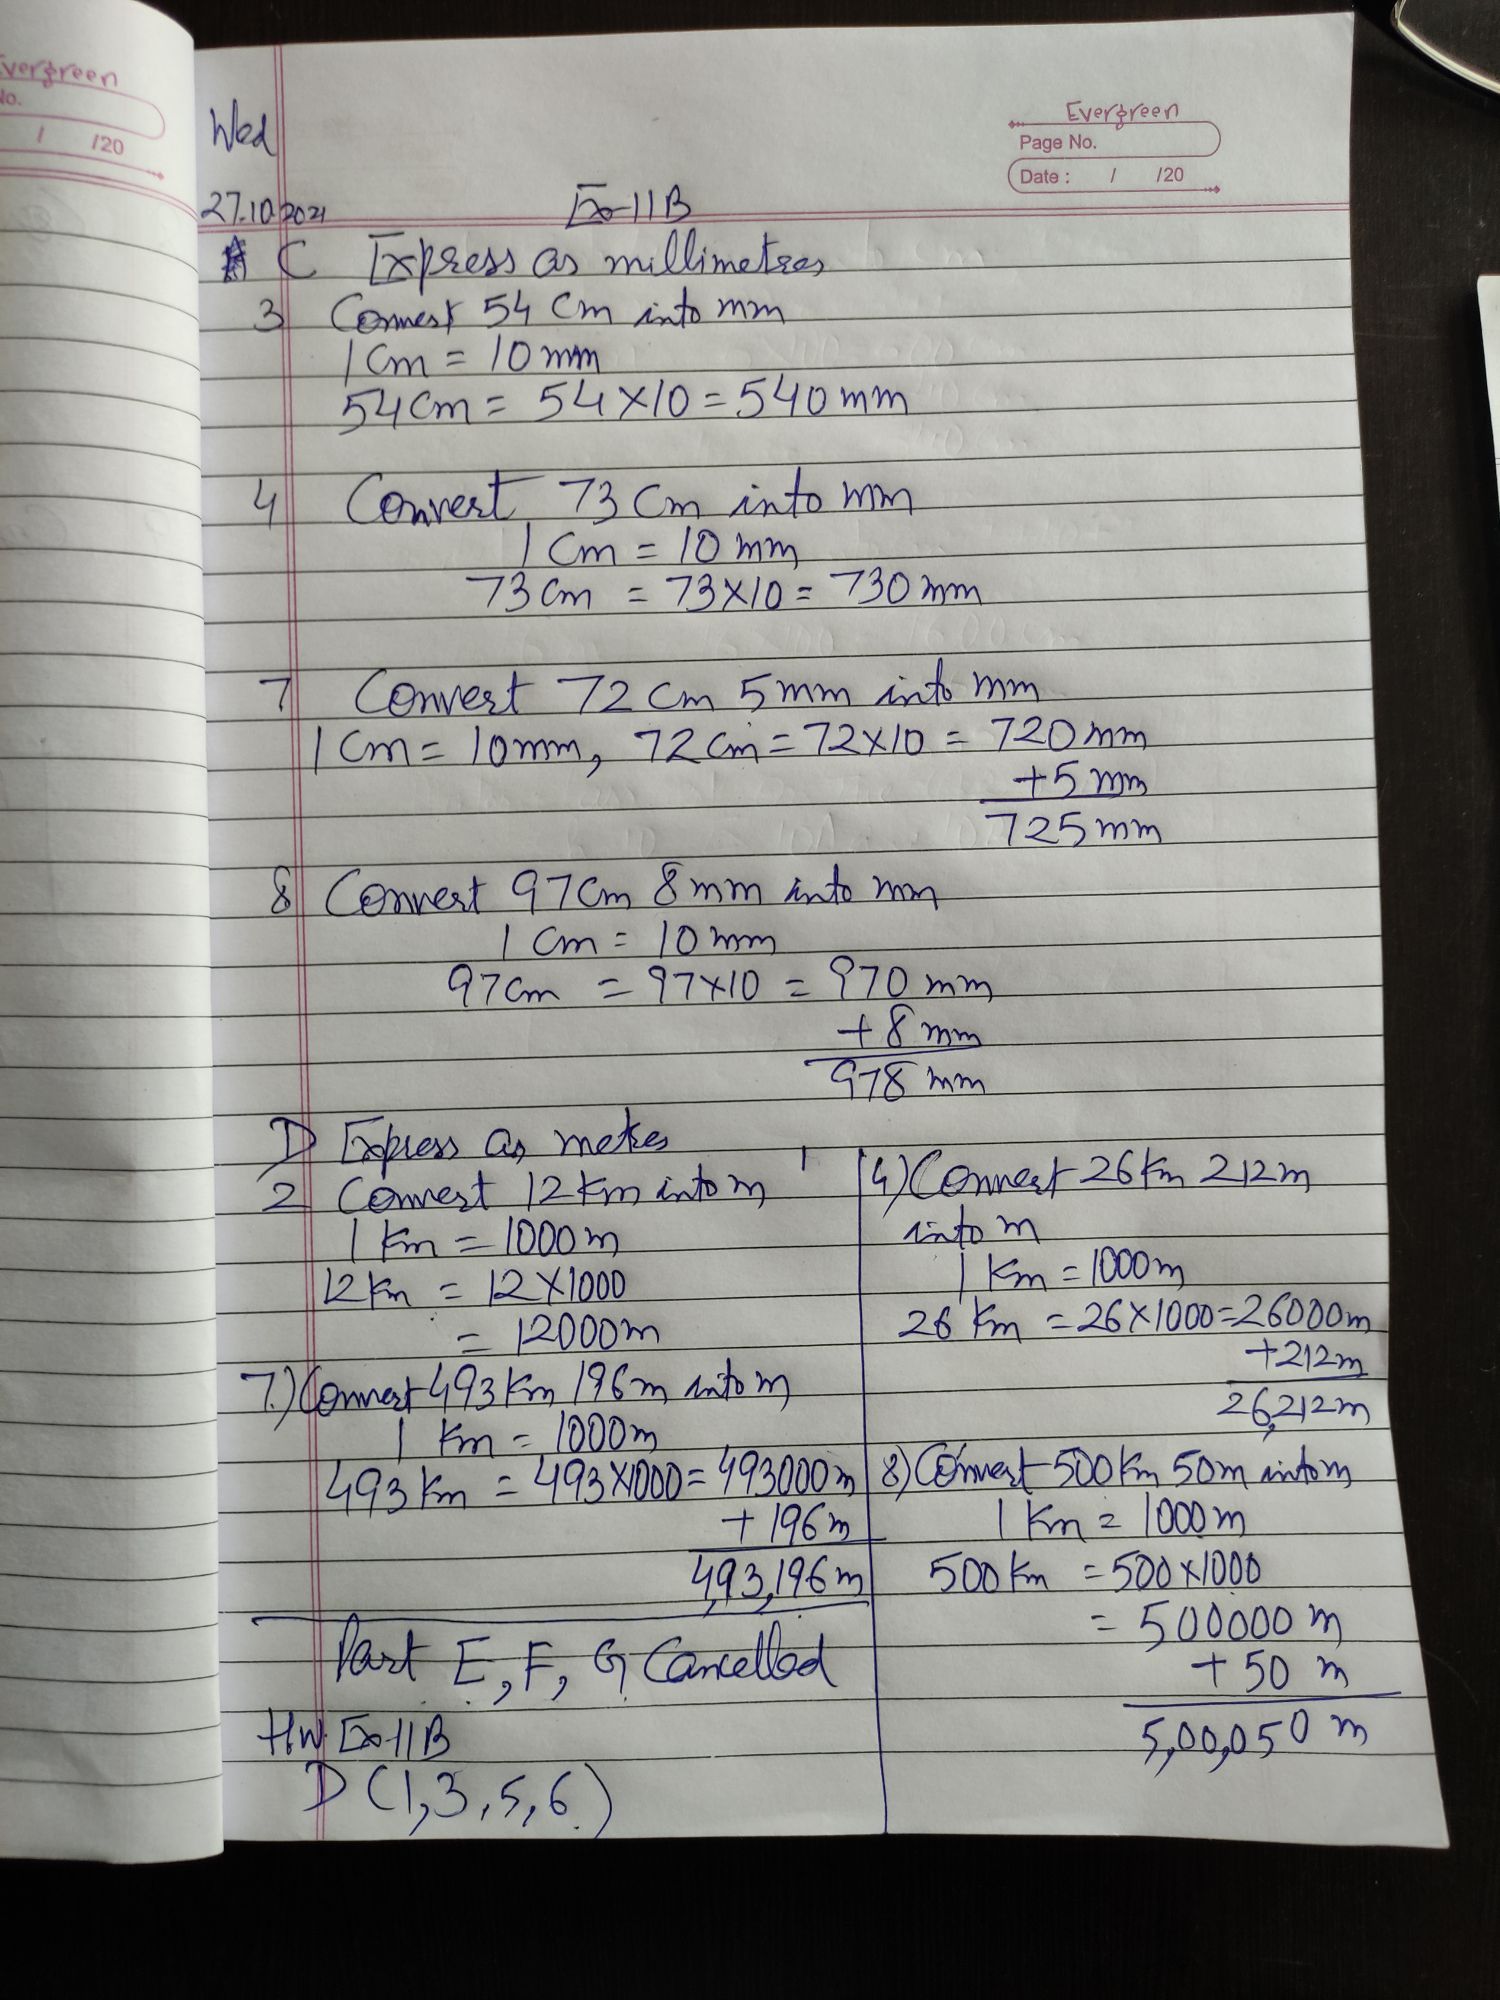 Evergreen
No.
/ /20
Wed
Evergreen
Page No.
Date : / /20
27.10.2021 Ex-11B
C Express as millimetres
3 Convert 54 Cm into mm
1 Cm = 10 mm
54 Cm = 54 × 10 = 540 mm
4 Convert 73 Cm into mm
1 Cm = 10 mm
73 Cm = 73×10 = 730 mm
7 Convert 72 Cm 5 mm into mm
1 Cm = 10 mm, 72 cm = 72×10 = 720 mm
+5 mm
725 mm
8 Convert 97 Cm 8 mm into mm
1 Cm = 10 mm
97 Cm = 97×10 = 970 mm
+ 8 mm
978 mm
D Express as metres
2 Convert 12 Km into m
1 Km = 1000 m
12 Km = 12 × 1000
= 12000 m
7.) Convert 493 Km 196 m into m
1 Km = 1000 m
493 Km = 493×1000 = 493000 m
+ 196 m
4,93,196 m
4) Convert 26 Km 212 m
into m
1 Km = 1000 m
26 Km = 26×1000 = 26000 m
+212 m
26,212 m
8) Convert 500 Km 50 m into m
1 Km = 1000 m
500 Km = 500×1000
= 500000 m
+ 50 m
5,00,050 m
Part E, F, G Cancelled
H.W. Ex-11B
D (1, 3, 5, 6.)